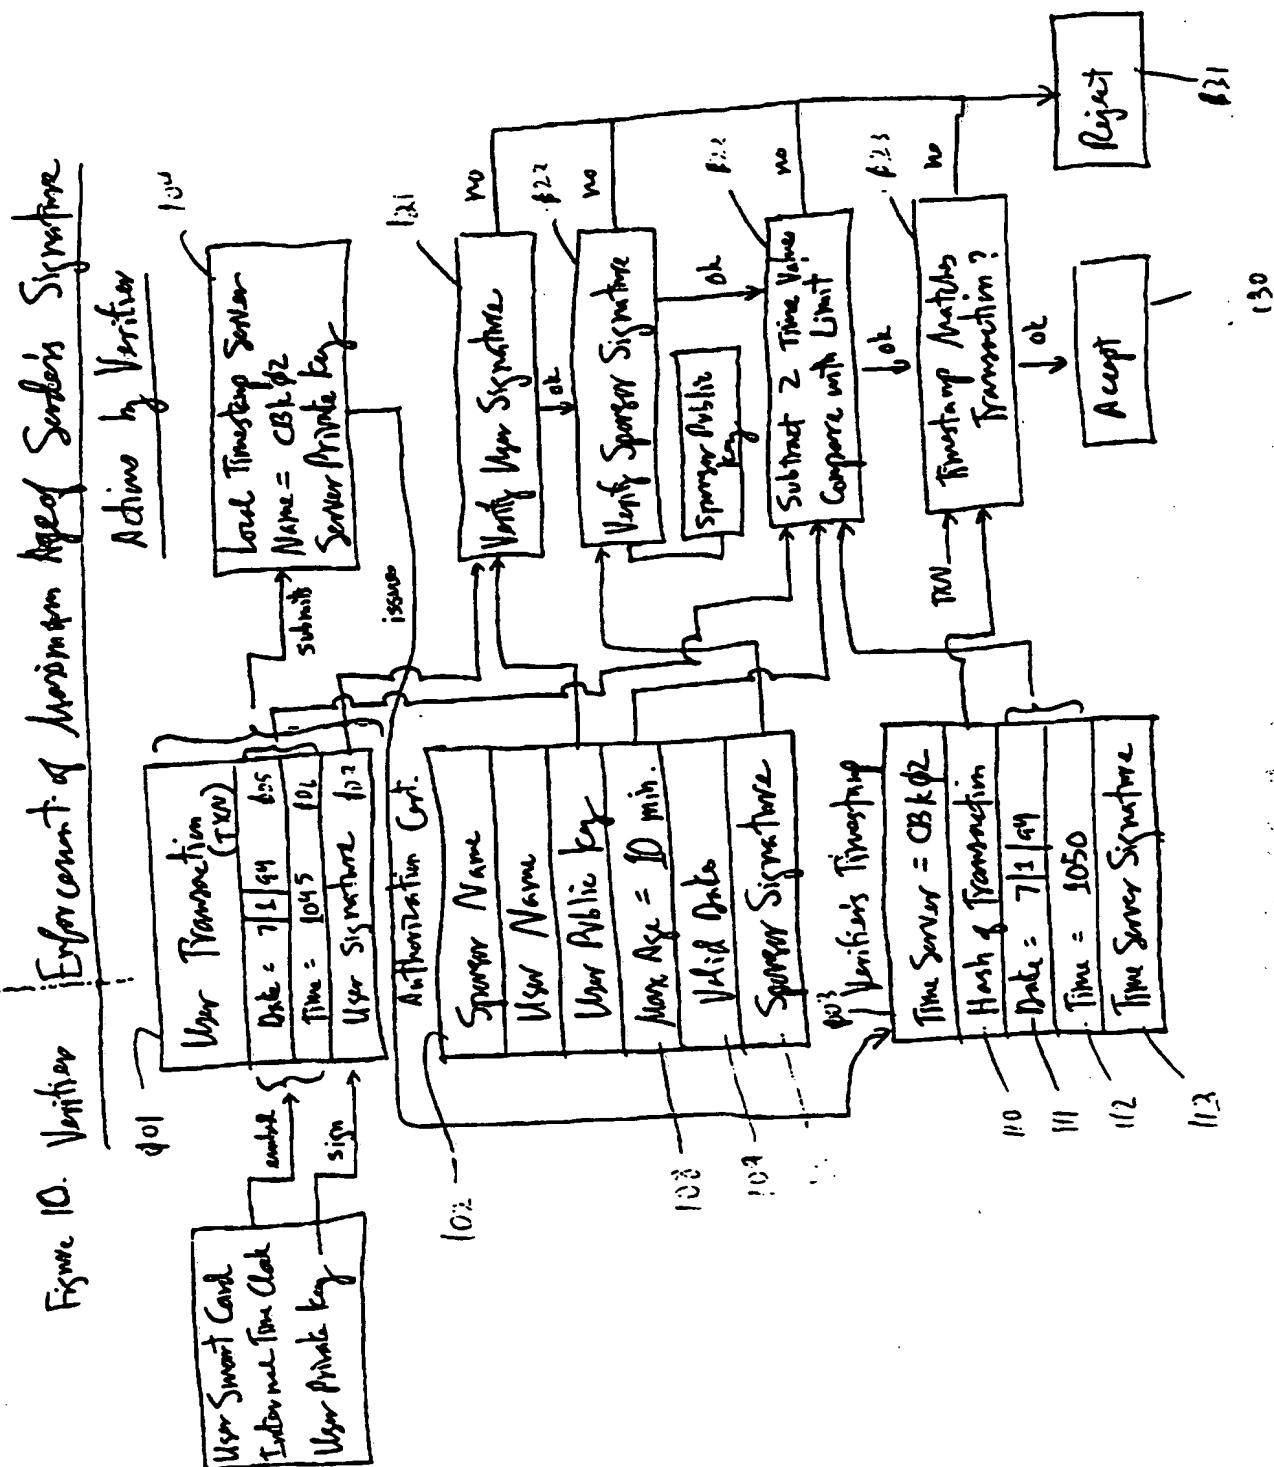 Figure 10. Verifies Enforcement of Maximum Age of Sender's Signature
Actions by Verifier
User Smart Card
Internal Time Clock
User Private Key
embed
sign
101
User Transaction
(TXN)
Date = 7/1/94 105
Time = 1045 106
User Signature 107
submits
104
Local Timestamp Server
Name = CBk02
Server Private Key
issues
102
Authorization Cert.
Sponsor Name
User Name
User Public Key
Max Age = 10 min.
Valid Date
Sponsor Signature
108
109
103
Verifiers Timestamp
Time Server = CBk02
Hash of Transaction
Date = 7/1/94
Time = 1050
Time Server Signature
110
111
112
113
121
Verify User Signature
no
ok
122
Verify Sponsor Signature
no
ok
Sponsor Public
Key
122
Subtract 2 Time Values
Compare with Limit
no
ok
TXN
123
Timestamp Matches
Transaction?
no
ok
Accept
130
Reject
131